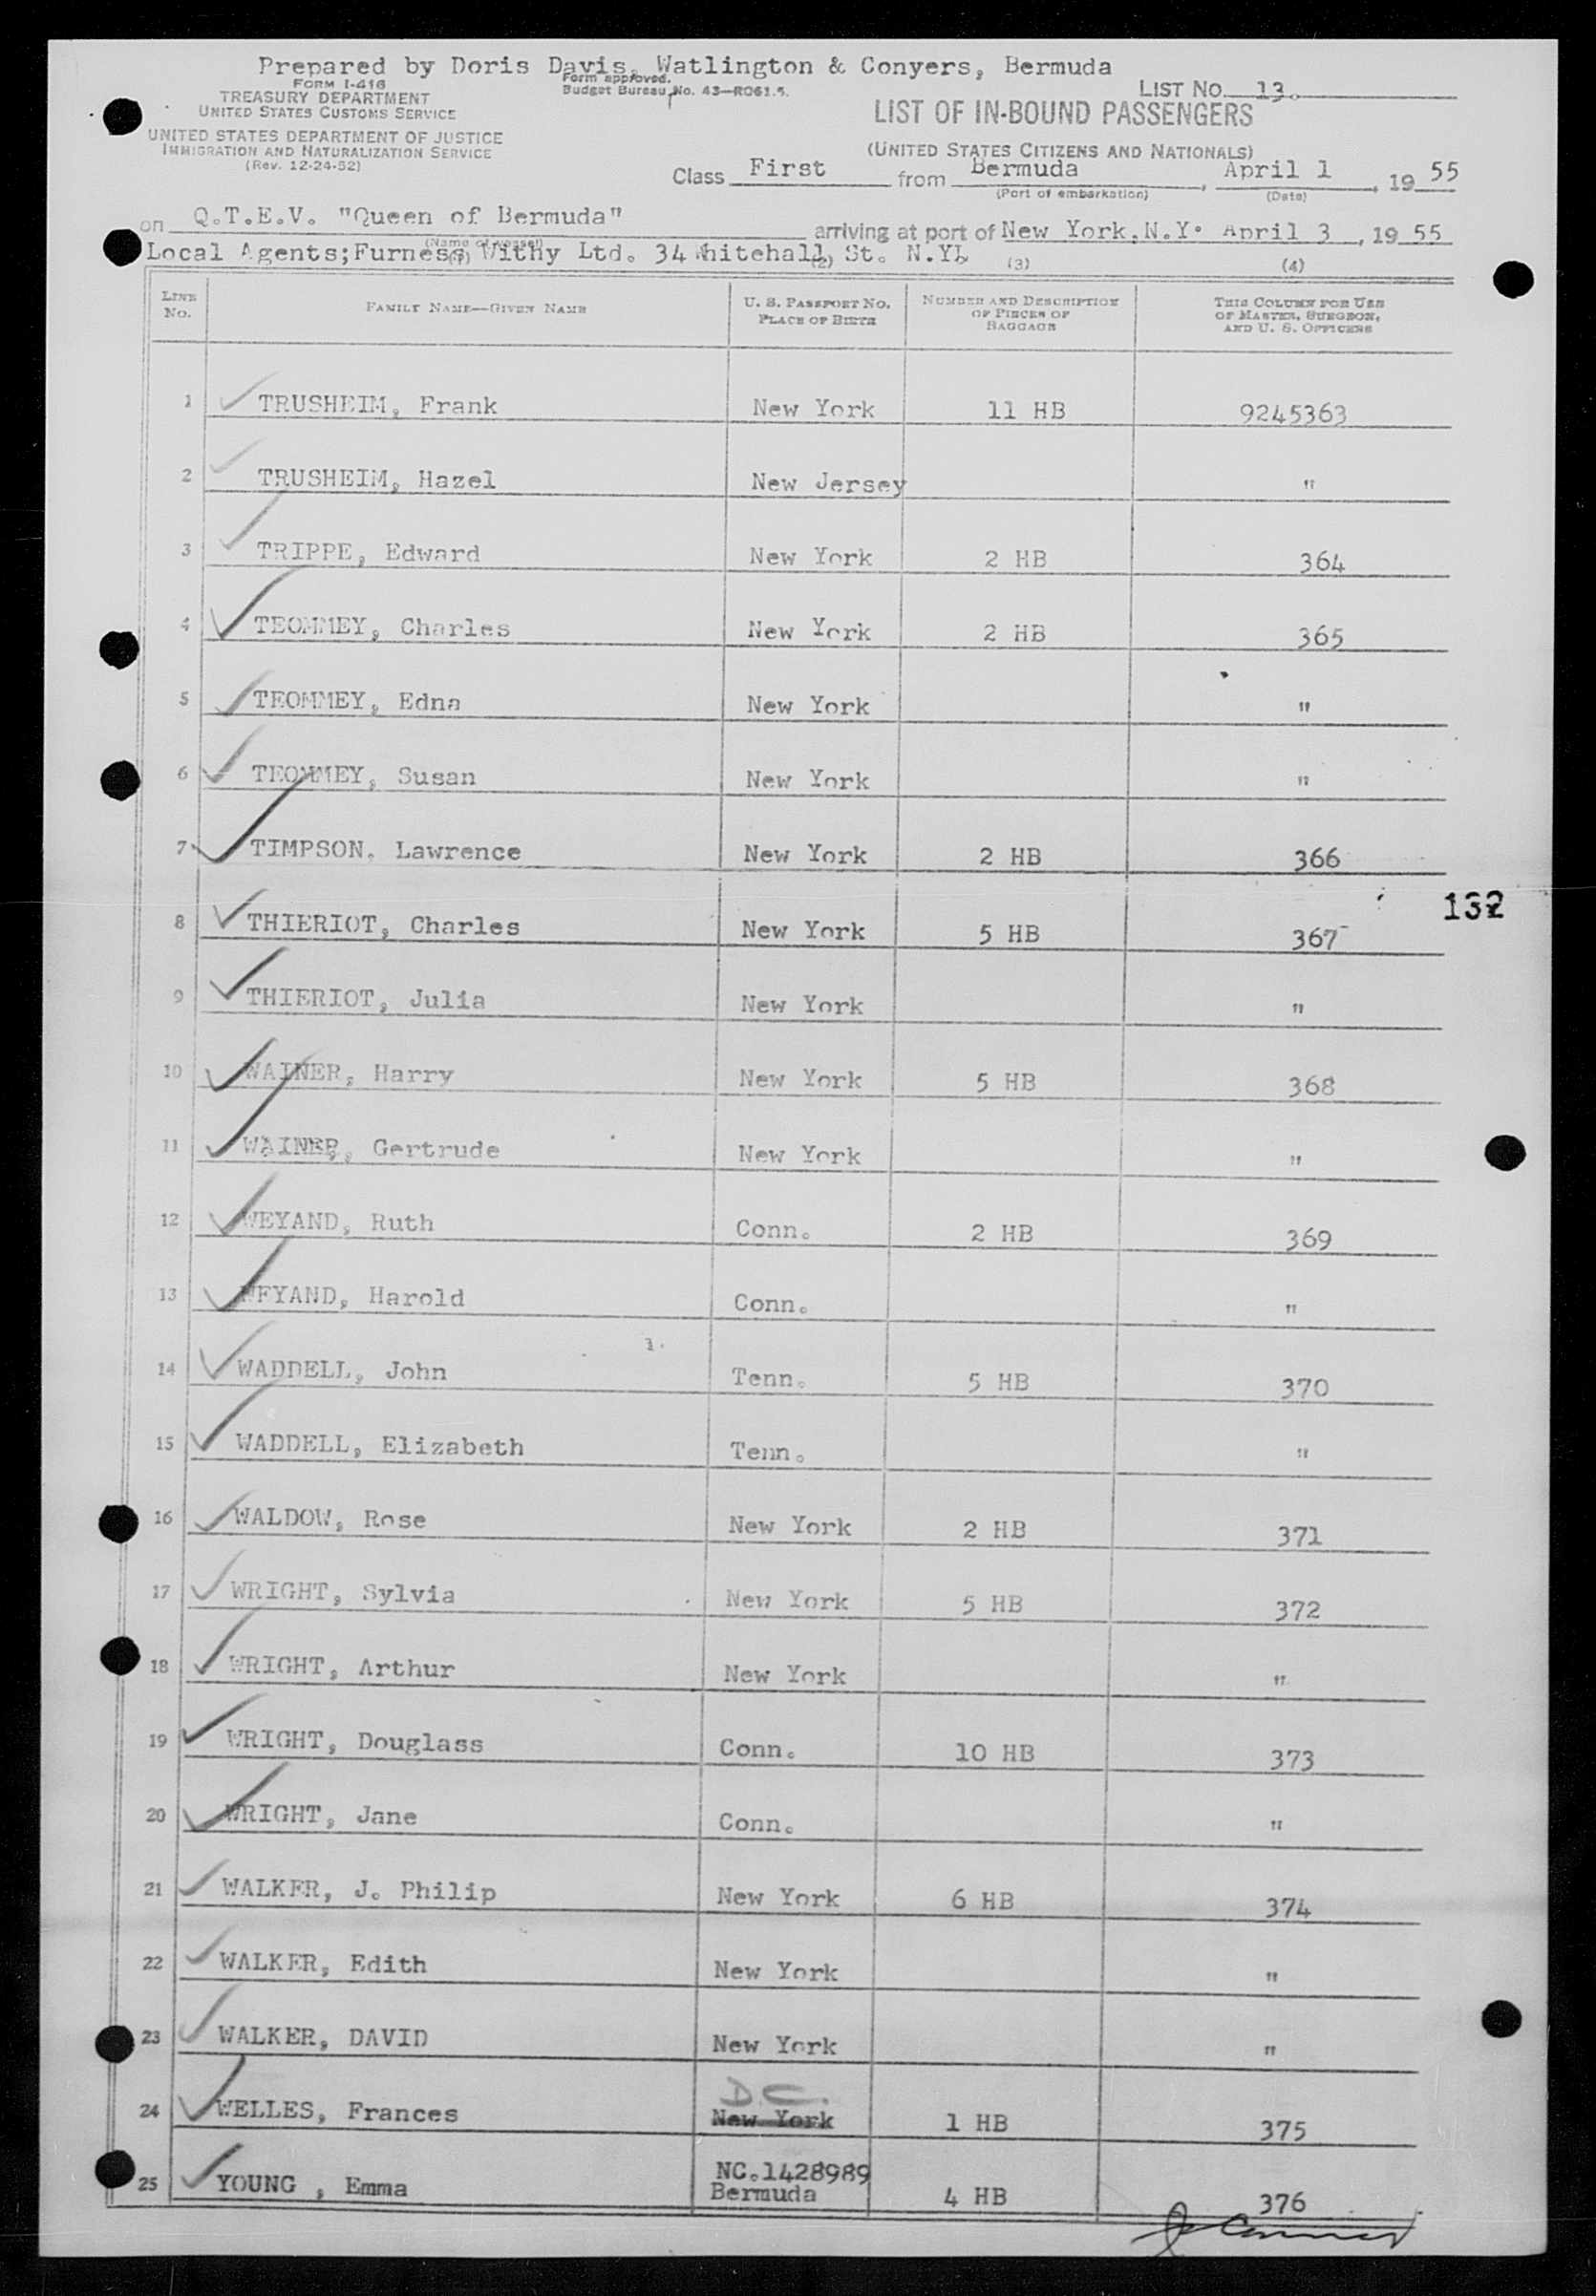 Prepared by Doris Davis, Watlington & Conyers, Bermuda
FORM I-416
TREASURY DEPARTMENT
UNITED STATES CUSTOMS SERVICE
UNITED STATES DEPARTMENT OF JUSTICE
IMMIGRATION AND NATURALIZATION SERVICE
(Rev. 12-24-52)
Form approved.
Budget Bureau No. 43—R061.5.
LIST NO. 13.
LIST OF IN-BOUND PASSENGERS
(UNITED STATES CITIZENS AND NATIONALS)
Class First from Bermuda, April 1, 19 55
(Port of embarkation) (Date)
on Q.T.E.V. "Queen of Bermuda" arriving at port of New York, N.Y. April 3, 19 55
(Name of vessel)
Local Agents;Furness Withy Ltd. 34 Whitehall St. N.Y.
(1) (2) (3) (4)
LINE NO. FAMILY NAME—GIVEN NAME U. S. PASSPORT NO. PLACE OF BIRTH NUMBER AND DESCRIPTION OF PIECES OF BAGGAGE THIS COLUMN FOR USE OF MASTER, SURGEON, AND U. S. OFFICERS
1 TRUSHEIM, Frank New York 11 HB 9245363
2 TRUSHEIM, Hazel New Jersey "
3 TRIPPE, Edward New York 2 HB 364
4 TEOMMEY, Charles New York 2 HB 365
5 TEOMMEY, Edna New York "
6 TEOMMEY, Susan New York "
7 TIMPSON, Lawrence New York 2 HB 366
132
8 THIERIOT, Charles New York 5 HB 367
9 THIERIOT, Julia New York "
10 WAINER, Harry New York 5 HB 368
11 WAINER, Gertrude New York "
12 WEYAND, Ruth Conn. 2 HB 369
13 WEYAND, Harold Conn. "
14 WADDELL, John Tenn. 5 HB 370
15 WADDELL, Elizabeth Tenn. "
16 WALDOW, Rose New York 2 HB 371
17 WRIGHT, Sylvia New York 5 HB 372
18 WRIGHT, Arthur New York "
19 WRIGHT, Douglass Conn. 10 HB 373
20 WRIGHT, Jane Conn. "
21 WALKER, J. Philip New York 6 HB 374
22 WALKER, Edith New York "
23 WALKER, DAVID New York "
D.C.
24 WELLES, Frances New York 1 HB 375
NC.1428989
25 YOUNG , Emma Bermuda 4 HB 376